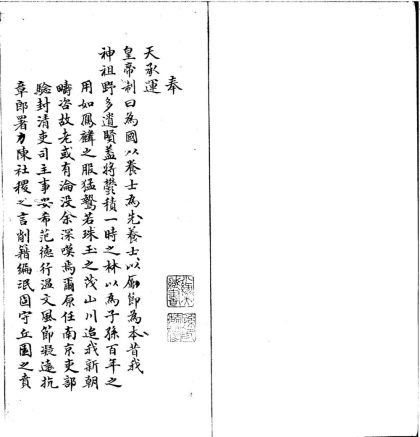 奉
天承運
皇帝制曰為國以養士為先養士以勵節為本昔我
神祖野多遺賢蓋將欝積一時之林以為子孫百年之
用如鳳麟之服猛鷙若珠玉之茂山川追我新朝
疇咨故老或有淪没余深嘆焉爾原任南京吏部
驗封清吏司主事安希范德行温文風節凝遠抗
章郎署力陳社稷之言削籍編氓固守丘園之賁